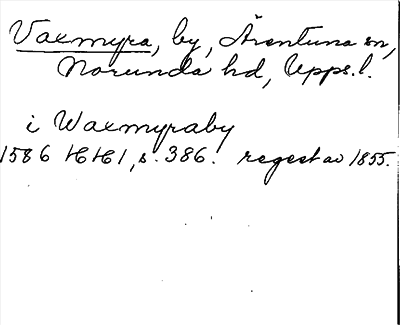 Vaxmyra, by, Ärentuna sn,
Norunda hd, Upps.l.
i Waxmyraby
1586 HH1, s. 386. regest av 1855.